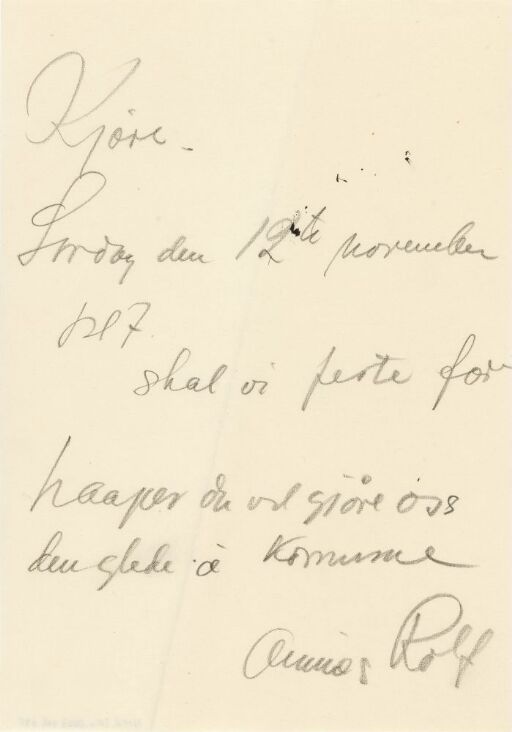 Kjøre -
Lørdag den 12te november
kl 7.
skal vi feste for
haaper du vil gjøre oss
den glede å komme
Rolf